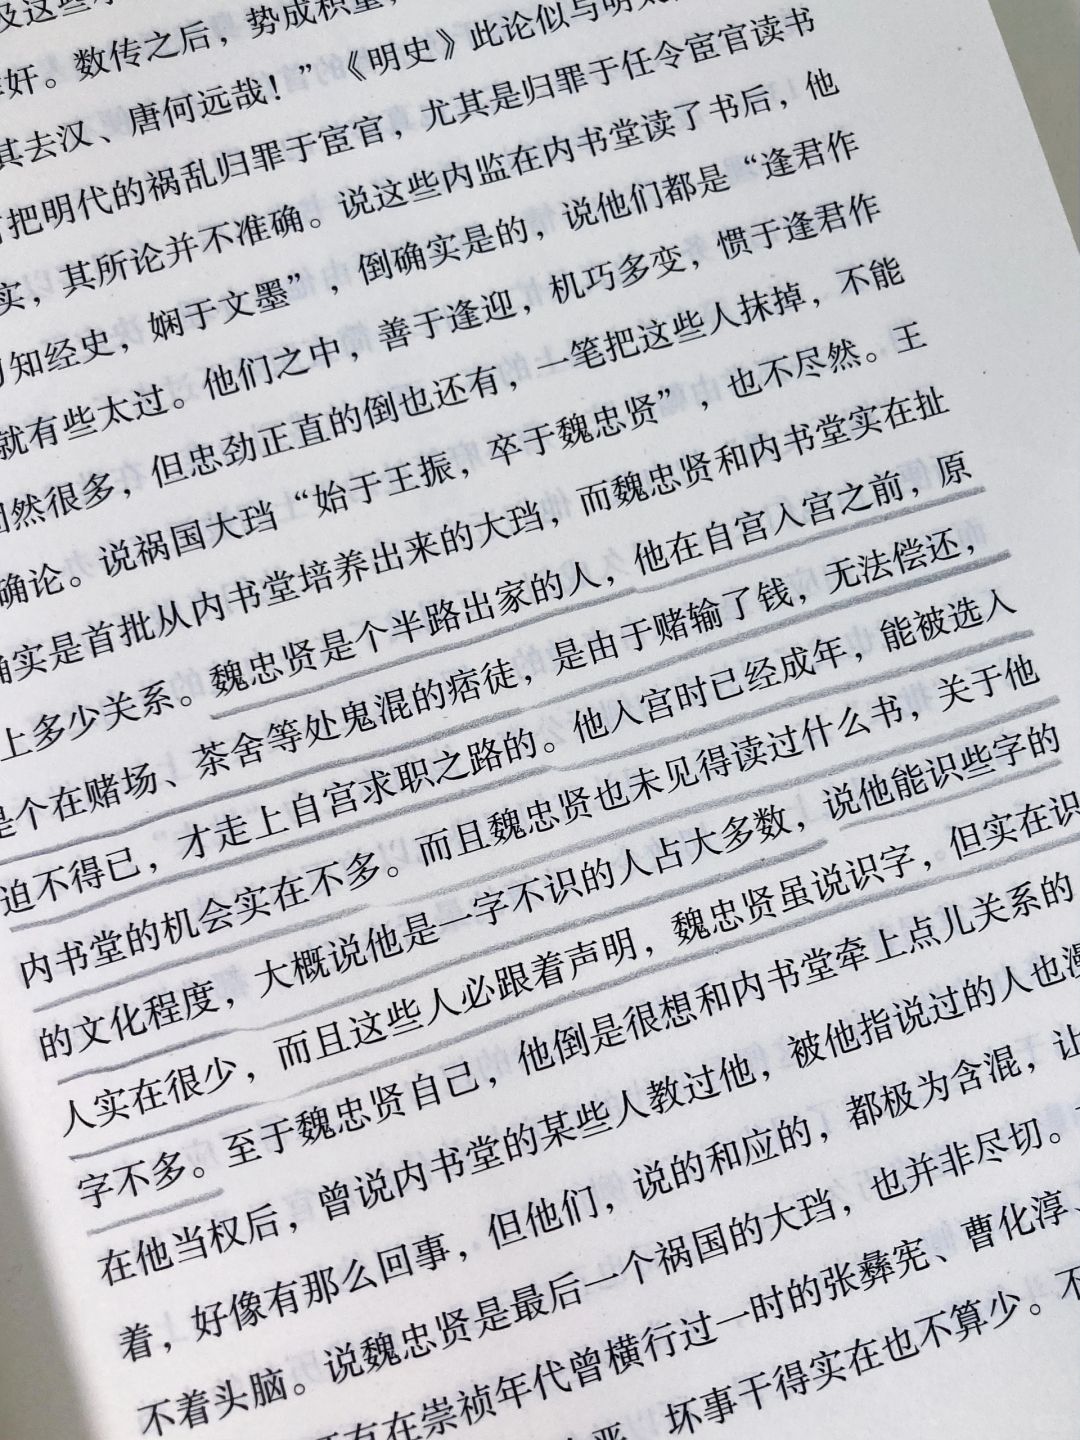 及这些
奸。数传之后，势成积重，
其去汉、唐何远哉！”《明史》此论似与明太
把明代的祸乱归罪于宦官，尤其是归罪于任令宦官读书
实，其所论并不准确。说这些内监在内书堂读了书后，他
知经史，娴于文墨”，倒确实是的，说他们都是“逢君作
就有些太过。他们之中，善于逢迎，机巧多变，惯于逢君作
固然很多，但忠劲正直的倒也还有，一笔把这些人抹掉，不能
确论。说祸国大珰“始于王振，卒于魏忠贤”，也不尽然。王
确实是首批从内书堂培养出来的大珰，而魏忠贤和内书堂实在扯
上多少关系。魏忠贤是个半路出家的人，他在自宫入宫之前，原
是个在赌场、茶舍等处鬼混的痞徒，是由于赌输了钱，无法偿还，
迫不得已，才走上自宫求职之路的。他入宫时已经成年，能被选入
内书堂的机会实在不多。而且魏忠贤也未见得读过什么书，关于他
的文化程度，大概说他是一字不识的人占大多数，说他能识些字的
人实在很少，而且这些人必跟着声明，魏忠贤虽说识字，但实在识
字不多。至于魏忠贤自己，他倒是很想和内书堂牵上点儿关系的
在他当权后，曾说内书堂的某些人教过他，被他指说过的人也漫
着，好像有那么回事，但他们，说的和应的，都极为含混，让
不着头脑。说魏忠贤是最后一个祸国的大珰，也并非尽切。
有在崇祯年代曾横行过一时的张彝宪、曹化淳、
恶，坏事干得实在也不算少。不